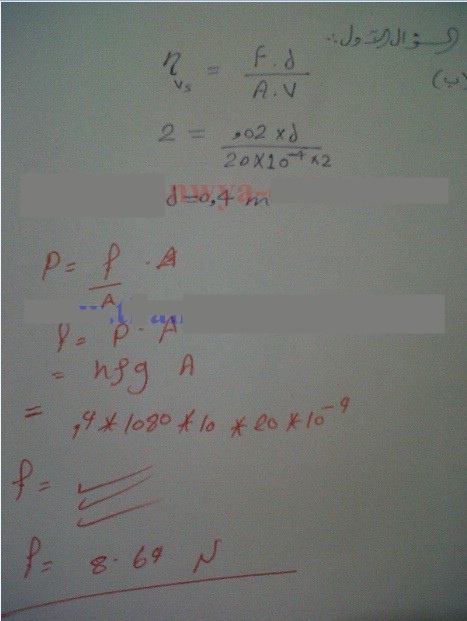 السؤال الأول:
(ب)
η_vs = F.d / A.V
2 = ,02 × d / 20×10⁻⁴×2
d=0,4 m
P = f / A · A
f = P · A
= hρg A
= ,4*1080*10*20*10⁻⁴
f =
f = 8.64 N